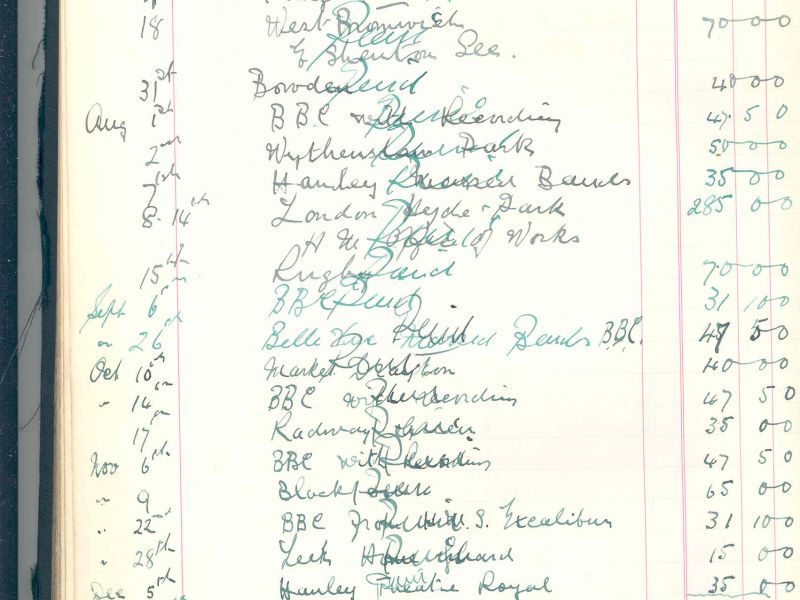 18 West Bromwich 70-0-0
Paid
31st Bowden 40-0-0
Paid
Aug 1st BBC with Recording 47. 5 0
2nd Wythenshaw Park 50-0-0
7th Hanley Massed Bands 35-0-0
8-14th London Hyde Park 285 0-0
H M Office of Works
15th Rugby 70-0-0
Paid
Sept 6th BBC 31 10 0
Paid
" 26th Belle Vue Massed Bands BBC. 47 5 0
Oct 10th Market Drayton 40-0-0
" 14th BBC with Recording 47 5 0
17th Radway Green 35 0-0
Nov 6th BBC with Recording 47 5 0
" 9 Blackpool 65 0-0
" 22nd BBC from H.M.S. Excalibur 31 10 0
" 28th Leek 15 0-0
Dec 5th Hanley Theatre Royal 35 0-0